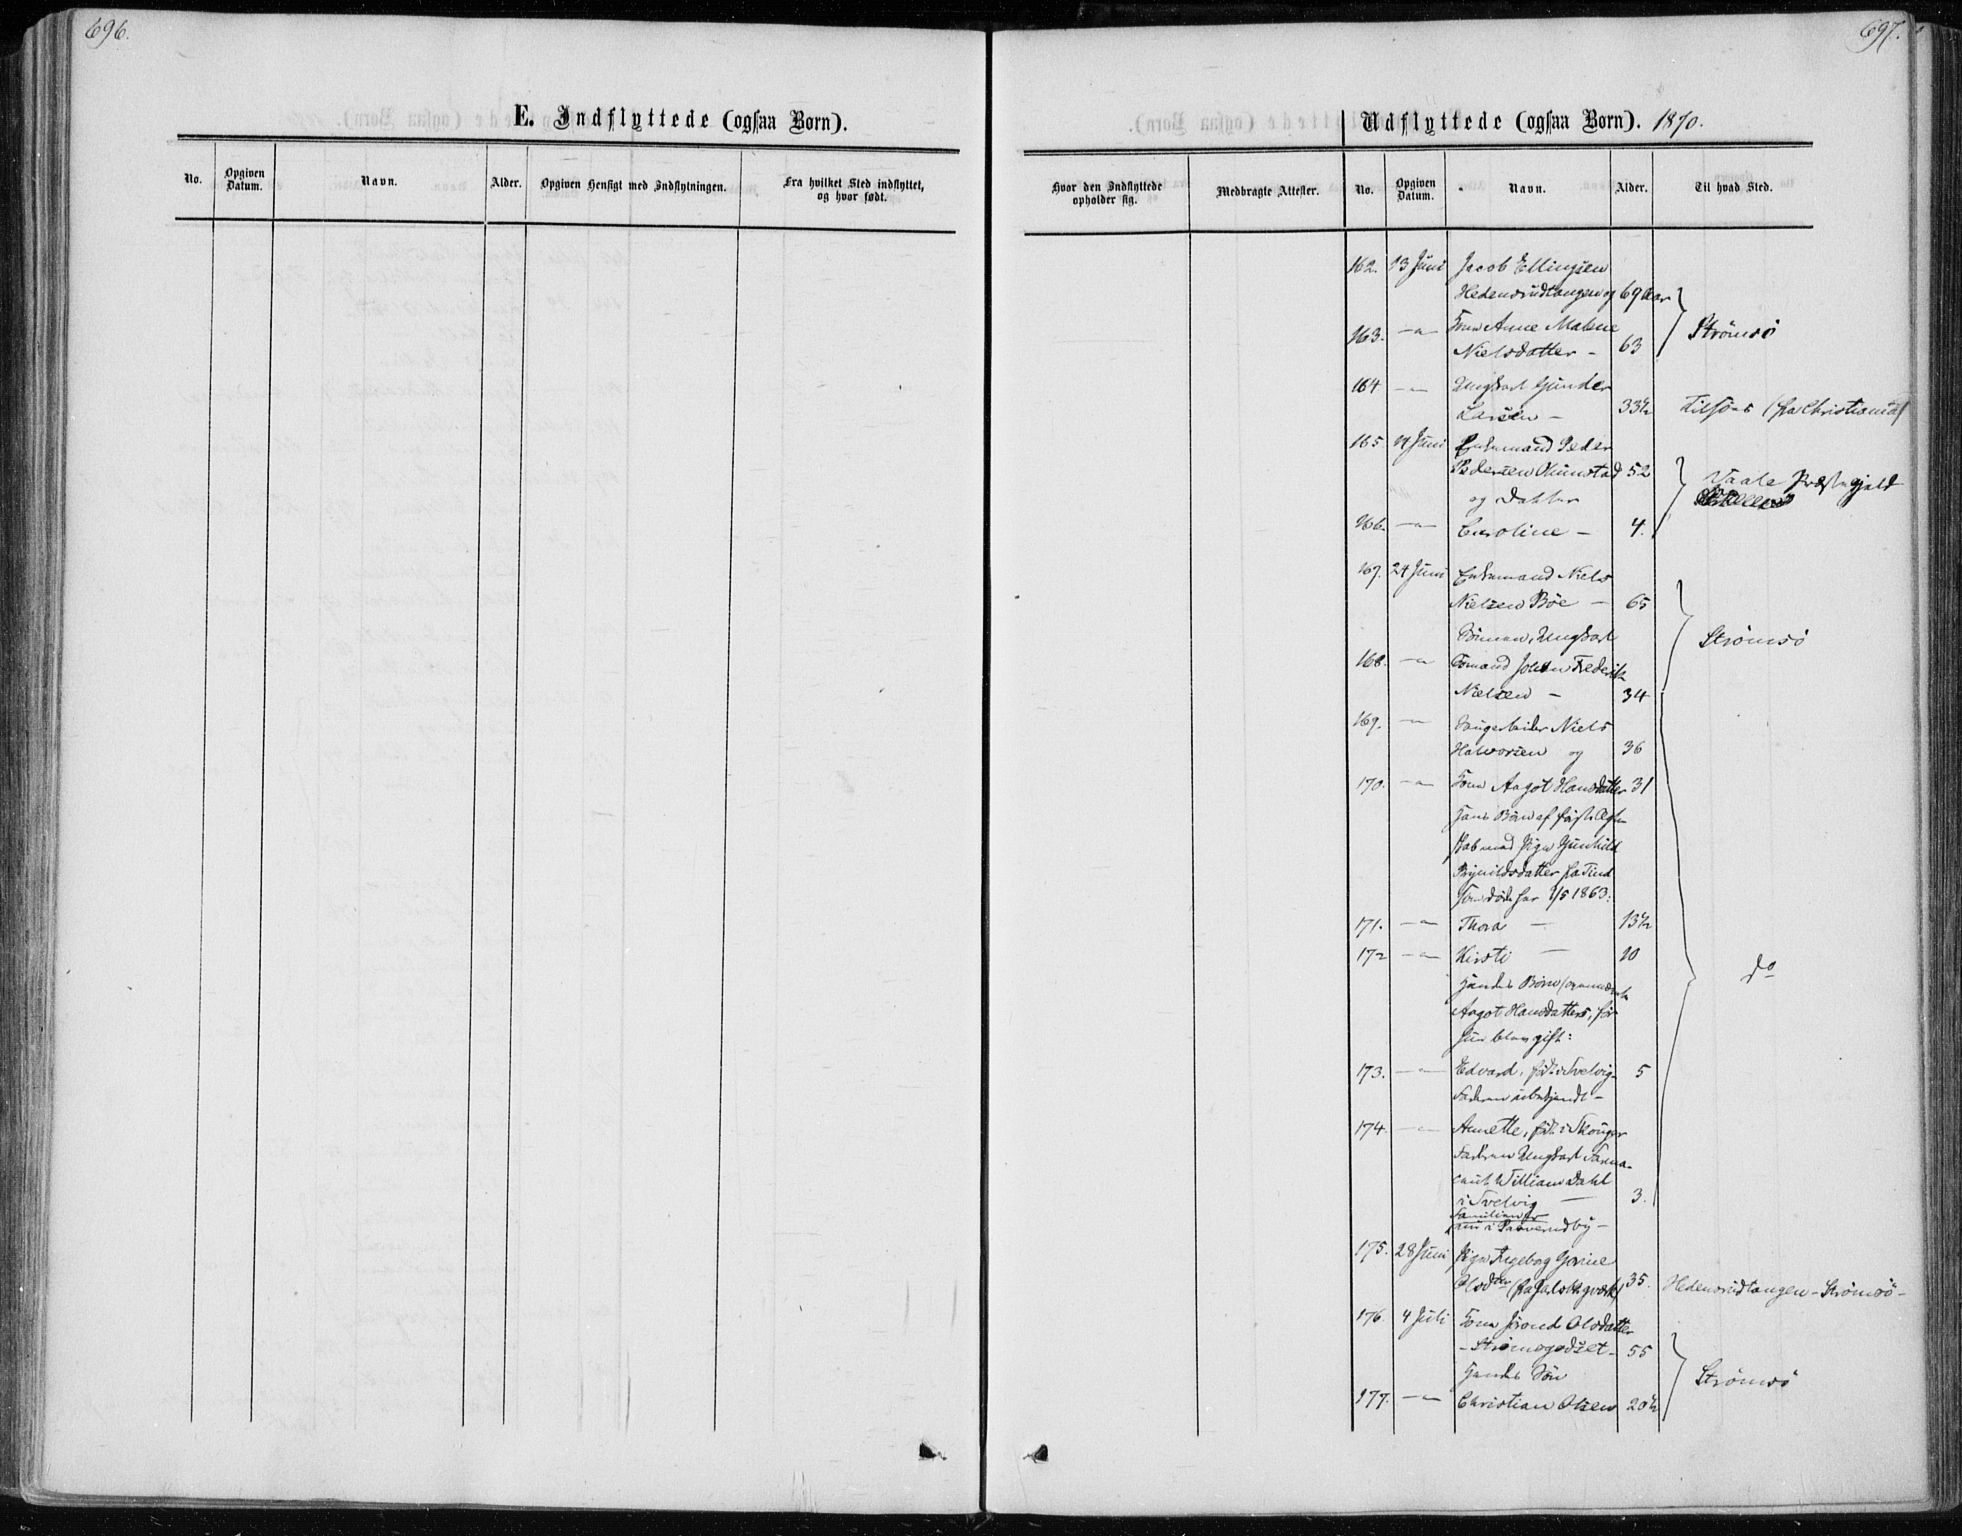 696.
E. Indflyttede (ogsaa Børn).
No.
Opgiven Datum.
Navn.
Alder.
Opgiven Hensigt med Indflytningen.
Fra hvilket Sted indflyttet, og hvor født.
697.
Udflyttede (ogsaa Børn). 1870.
Hvor den Indflyttede opholder sig.
Medbragte Attester.
No.
Opgiven Datum.
Navn.
Alder.
Til hvad Sted.
162. 13 Juni Jacob Ellingsen
Hedensrudtangen og 69 Aar
163. —"— Kone Anne Malene
Nielsdatter - 63
Strømsö
164 —"— Ungkarl Gunder
Larsen - 33½ Tilsøes (fra Christiania)
165 14 Juni Enkemand Peder
Pedersen 52
Vaale Præstegjeld
og Datter
166. —"— Caroline - 4.
167. 24 Juni Enkemand Niels
Nielsen Böe - 65
Sönnen, Ungkarl
Strömsö
168. —"— Sömand Johan Frederik
Nielsen - 34
169. —"— Niels
Halvorsen og 36
170. —"— Kone Aagot Hansdatter 31
Hans Börn af første Ægte-
skab med Pige Gunhild
Brynildsdatter fra Tind
som døde her 1/5 1863:
171. —"— Thora - 13½
172 —"— Kirsti - 10
do
Hendes Børn
Aagot Hansdatters, før
hun blev gift:
173. —"— Edvard, født i Svelvig 5
Faderen ubekjendt -
174. —"— Annette, født i Skouger
Faderen Ungkarl Farma-
ceut William Dahl
i Svelvig - 3.
Familien er
nu i Professorby -
175. 28 Juni Pige Ingebog Gorine
Olsdtter (fra Jarlsbergværk) 35. Hedensrudtangen - Strömsö -
176. 4 Juli Kone Jrond Olsdatter
- Strömsgodset - 55
Hendes Sön
Strömsö
177. —"— Christian Olsen 20½